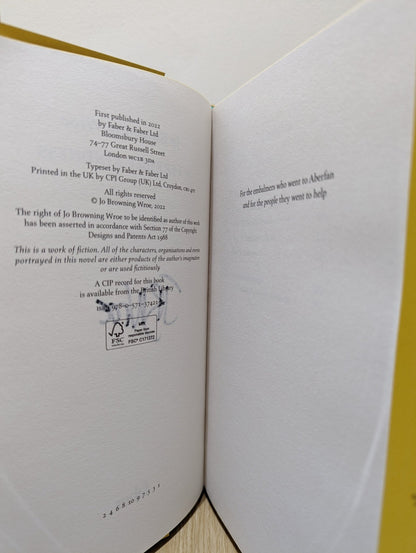 First published in 2022
by Faber & Faber Ltd
Bloomsbury House
74–77 Great Russell Street
London WC1B 3DA
Typeset by Faber & Faber Ltd
Printed in the UK by CPI Group (UK) Ltd, Croydon, CR0 4YY
All rights reserved
© Jo Browning Wroe, 2022
The right of Jo Browning Wroe to be identified as author of this work
has been asserted in accordance with Section 77 of the Copyright,
Designs and Patents Act 1988
This is a work of fiction. All of the characters, organisations and events
portrayed in this novel are either products of the author's imagination
or are used fictitiously
A CIP record for this book
is available from the British Library
ISBN 978–0–571–3742
FSC
MIX
Paper from
responsible sources
FSC® C171272
2 4 6 8 10 9 7 5 3 1
For the embalmers who went to Aberfan
and for the people they went to help